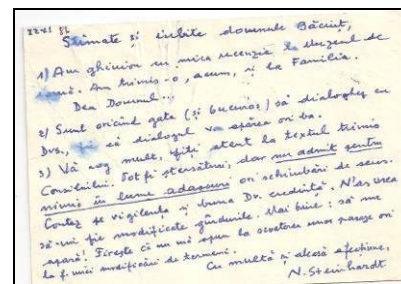 22 XI 82
Stimate și iubite domnule Băciuț,
1) Am ghinion cu mica recenzie la eseul de
Am trimis-o, acum, și la Familia.
Dea Domnul...
2) Sunt oricând gata (și bucuros) să dialoghez cu
Dvs., fie că dialogul va apărea ori ba.
3) Vă rog mult, fiți atent la textul trimis
Tot fi ștersături, dar nu admit pentru
nimic în lume adaosuri ori schimbări de sens.
Contez pe vigilența și buna Dv. credință. N'aș vrea
să-mi fie modificate gândurile. Mai bine: să nu
apară! Firește că nu mă opun la scoaterea unor pasaje ori
la f. mici modificări de termeni.
Cu multă și aleasă afecțiune,
N. Steinhardt